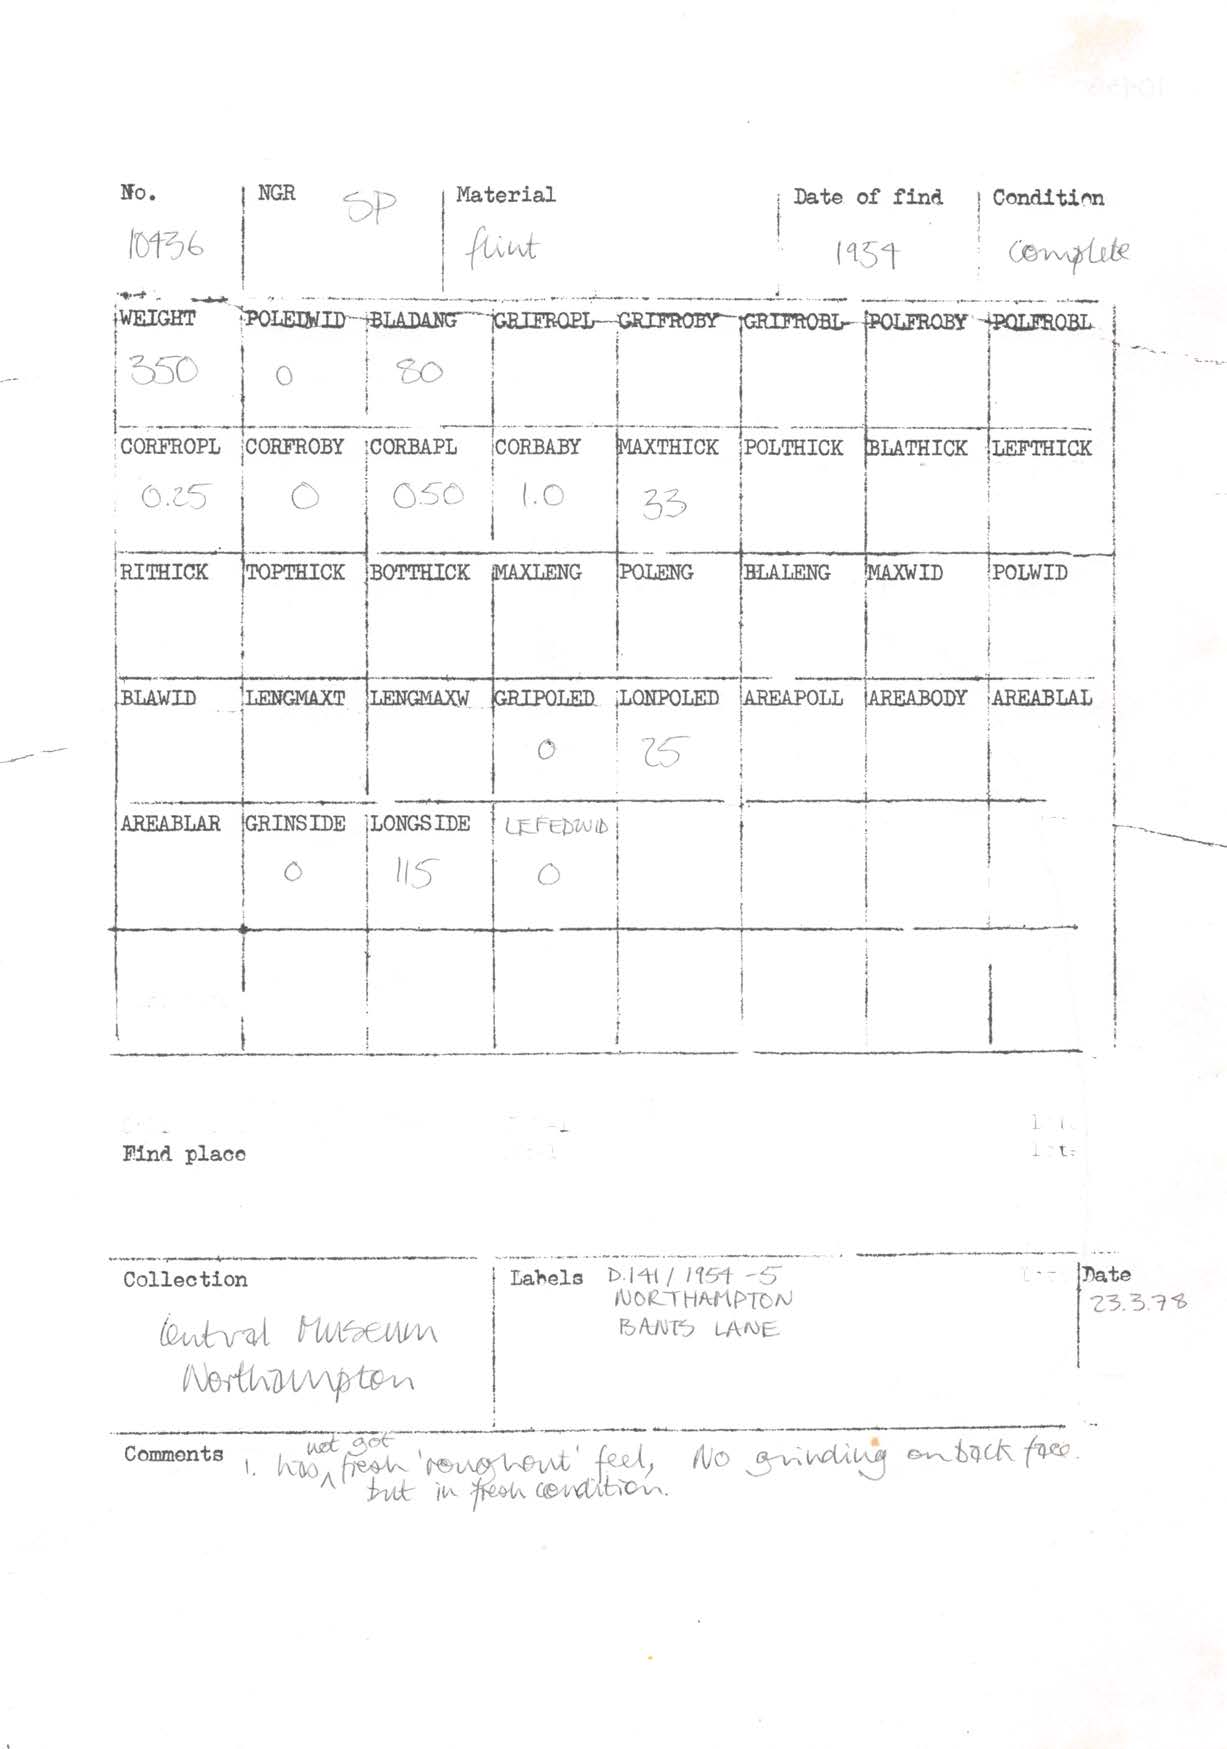 No. NGR SP Material Date of find Condition
10436 flint 1954 complete
WEIGHT POLEDWID BLADANG GRIFROPL GRIFROBY GRIFROBL POLFROBY POLFROBL
350 0 80
CORFROPL CORFROBY CORBAPL CORBABY MAXTHICK POLTHICK BLATHICK LEFTHICK
0.25 0 0.50 1.0 33
RITHICK TOPTHICK BOTTHICK MAXLENG POLENG BLALENG MAXWID POLWID
BLAWID LENGMAXT LENGMAXW GRIPOLED LONPOLED AREAPOLL AREABODY AREABLAL
0 25
AREABLAR GRINSIDE LONGSIDE LEFEDWID
0 115 0
Find place
Collection Labels D.141/1954-5 Date
NORTHAMPTON 23.3.78
Central Museum BANTS LANE
Northampton
not got
Comments 1. has ^ fresh 'roughout' feel, No grinding on back face.
but in fresh condition.